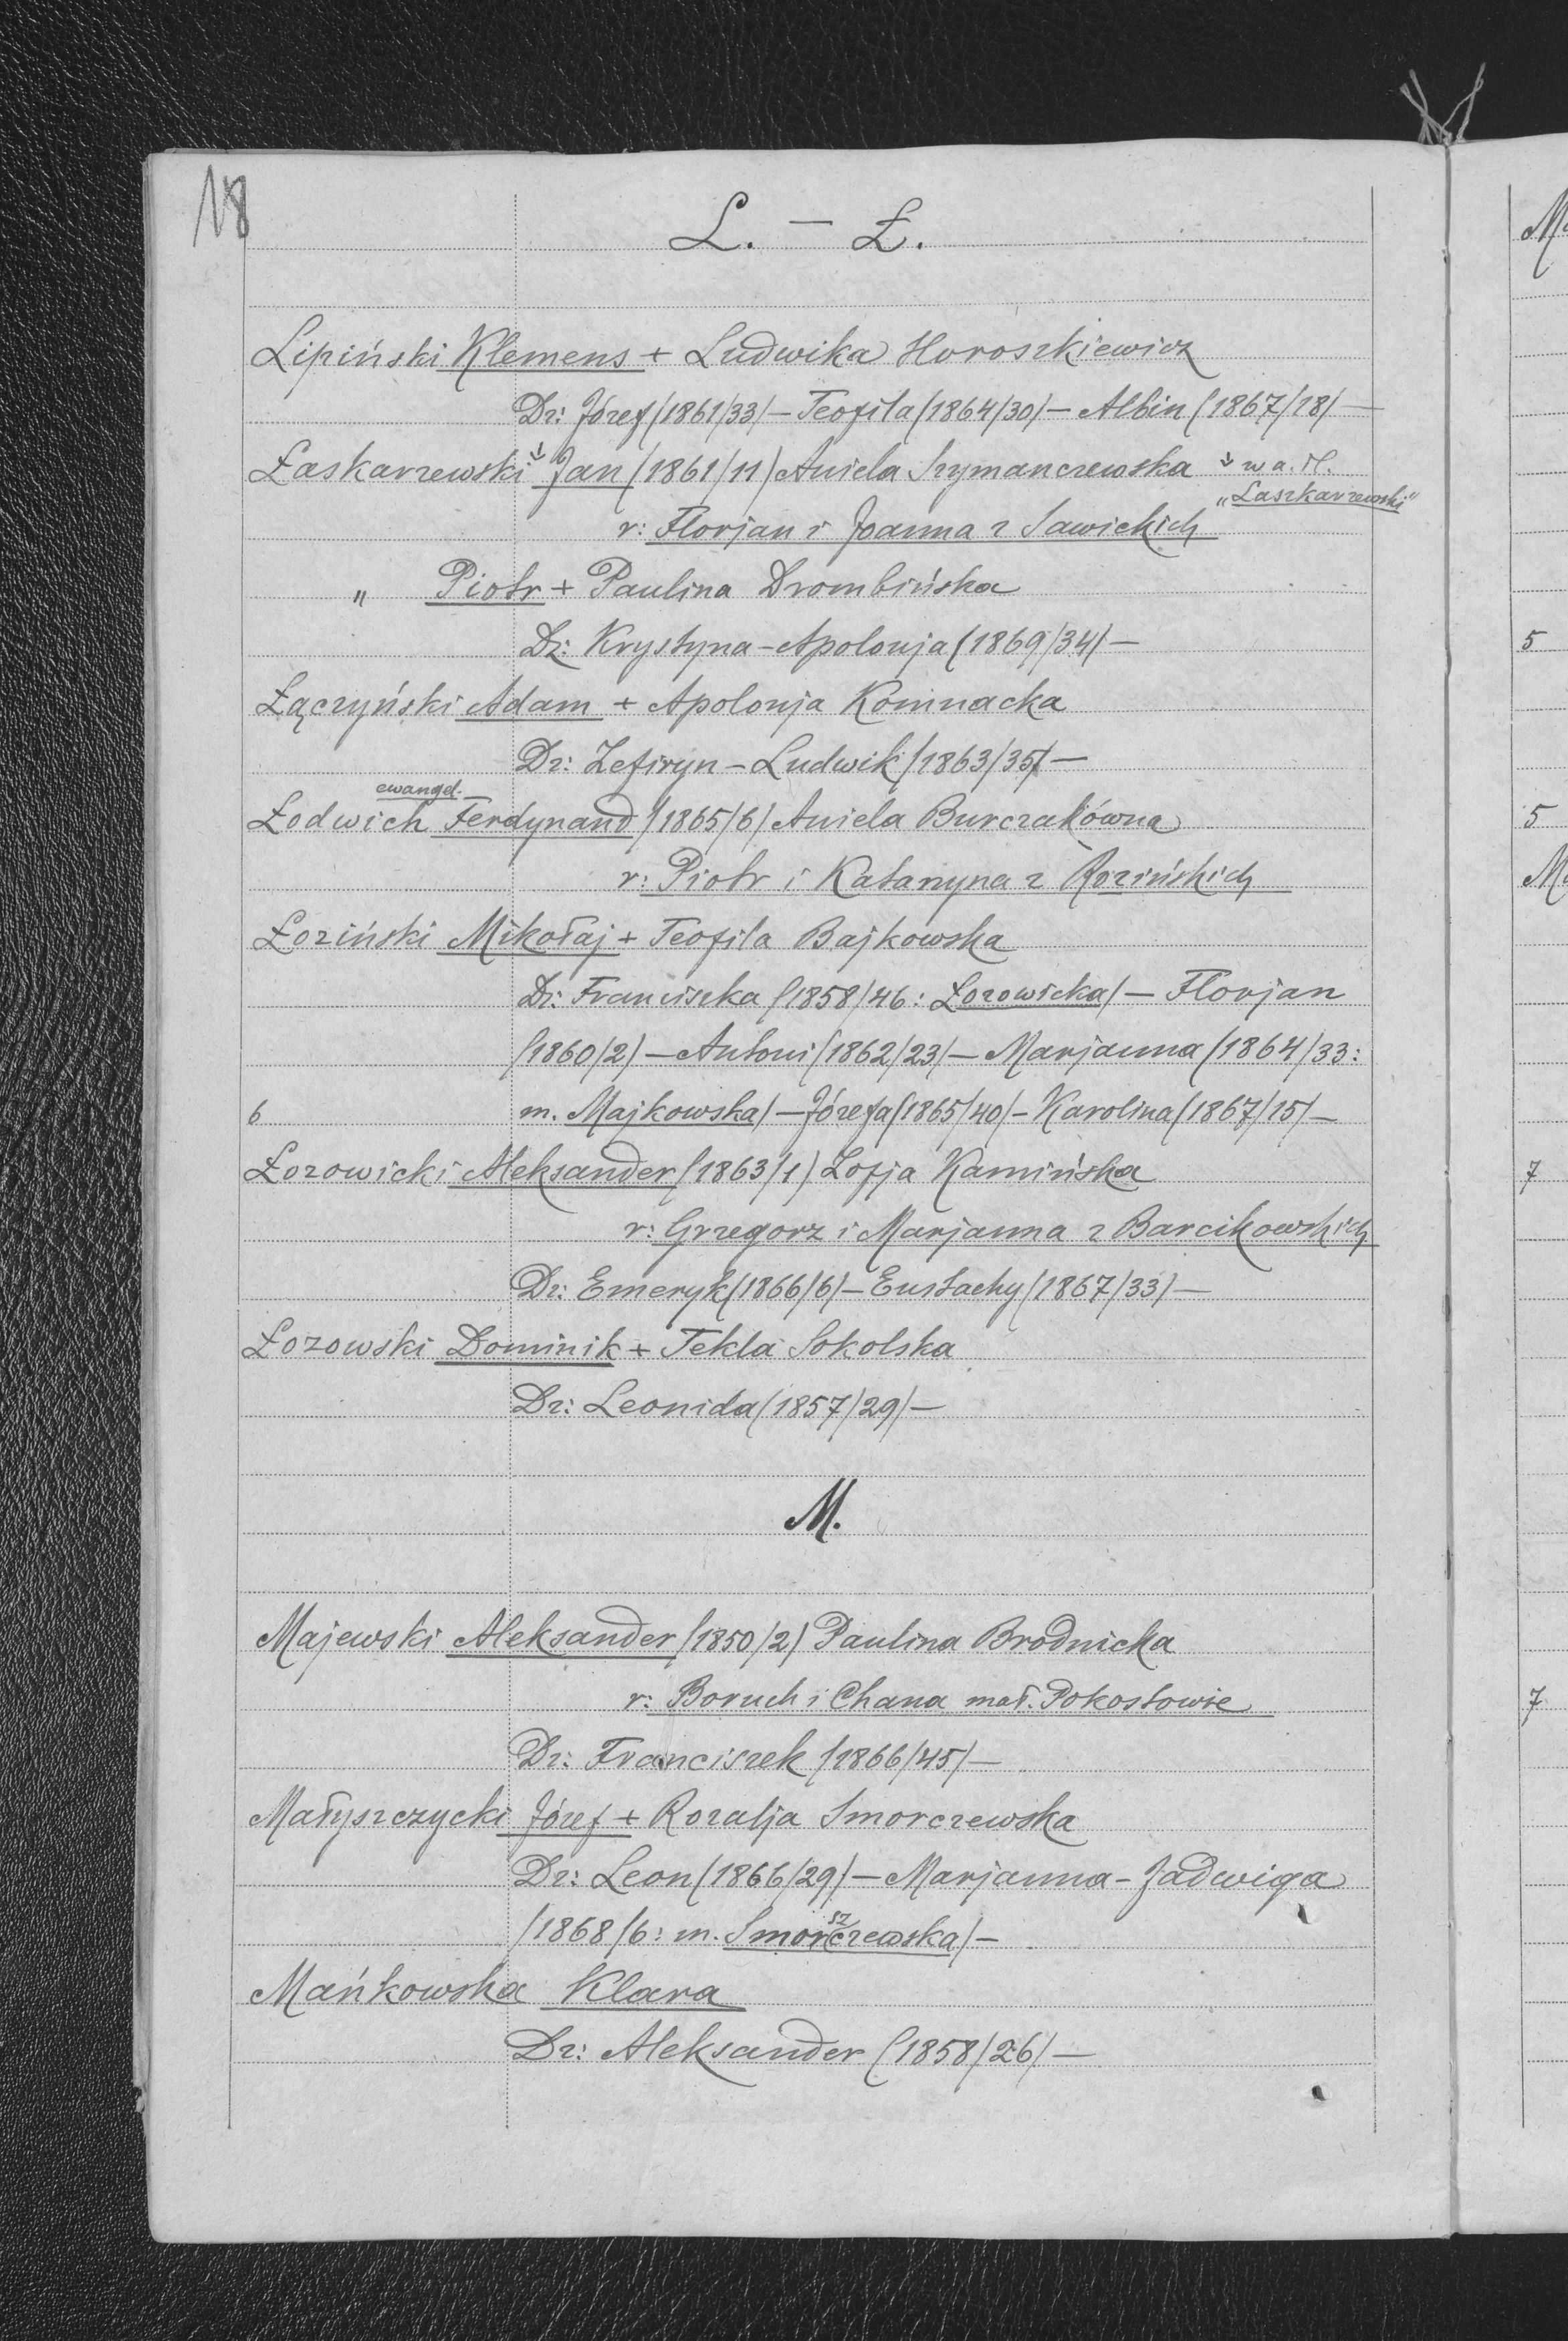 18
L. – Ł.
Lipiński Klemens + Ludwika Horoszkiewicz
Dz: Józef (1861/33) – Teofila (1864/30) – Albin (1867/18) –
Łaskarzewski ↓ Jan (1861/11) Aniela Szymanczewska ↓ w a. M.
"Laszkarzewski"
r: Florjan i Joanna z Sawickich
" Piotr + Paulina Drombińska
Dz: Krystyna-Apolonja (1869/34) –
Łączyński Adam + Apolonja Kominacka
Dz: Zefiryn – Ludwik (1863/35) –
ewangel.
Łodwich Ferdynand (1865/6) Aniela Burczakówna
r: Piotr i Katarzyna z Rozińskich
Łoziński Mikołaj + Teofila Bajkowska
Dz: Franciszka (1858/46: Łozowicka) – Florjan
(1860/2) – Antoni (1862/23) – Marjanna (1864/33:
6 m. Majkowska) – Józefa (1865/40) – Karolina (1867/15) –
Łozowicki Aleksander (1863/1) Zofja Kamińska
r: Grzegorz i Marjanna z Barcikowskich
Dz: Emeryk (1866/6) – Eustachy (1867/33) –
Łozowski Dominik + Tekla Sokolska
Dz: Leonida (1857/29) –
M.
Majewski Aleksander (1850/2) Paulina Brodnicka
r: Boruch i Chana mał. Pokostowie
Dz: Franciszek (1866/45) –
Małyszczycki Józef + Rozalja Smorczewska
Dz: Leon (1866/29) – Marjanna – Jadwiga
sz
(1868/6: m. Smorczewska) –
Mańkowska Klara
Dz: Aleksander (1858/26) –
5
5
7
7